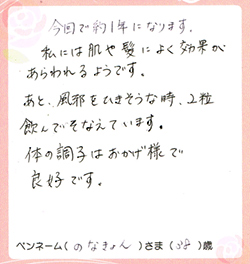 今回で約1年になります。
私には肌や髪によく効果が
あらわれるようです。
あと、風邪をひきそうな時、2粒
飲んでそなえています。
体の調子はおかげ様で
良好です。
ペンネーム(のなきょん)さま(38)歳